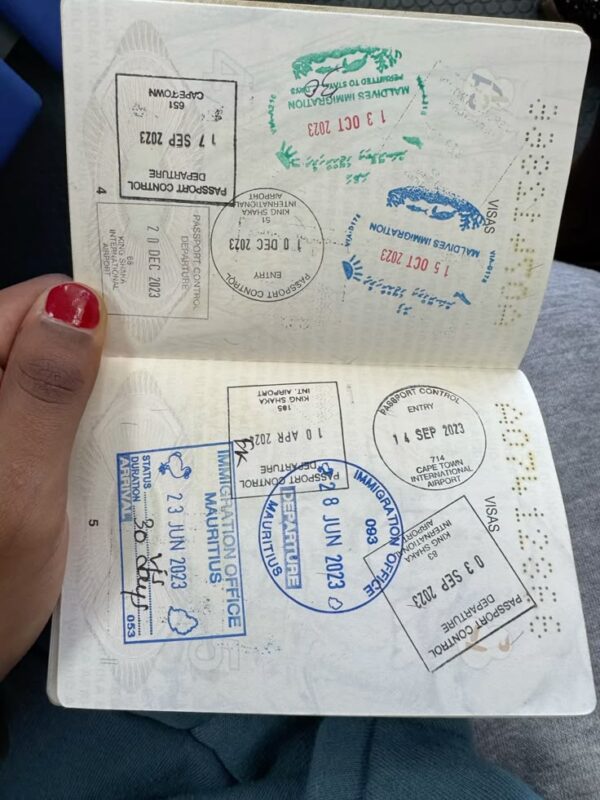 4
PASSPORT CONTROL
DEPARTURE
17 SEP 2023
651
CAPE TOWN
MALDIVES IMMIGRATION
PERMITTED TO STAY DAYS
13 OCT 2023
PASSPORT CONTROL
DEPARTURE
20 DEC 2023
68
KING SHAKA
INTERNATIONAL
AIRPORT
PASSPORT CONTROL
ENTRY
10 DEC 2023
51
KING SHAKA
INTERNATIONAL
AIRPORT
MALDIVES IMMIGRATION
15 OCT 2023
VISAS
5
PASSPORT CONTROL
DEPARTURE
10 APR 202
185
KING SHAKA
INT. AIRPORT
PASSPORT CONTROL
ENTRY
14 SEP 2023
714
CAPE TOWN
INTERNATIONAL
AIRPORT
IMMIGRATION OFFICE
MAURITIUS
23 JUN 2023
STATUS
DURATION 30 days
ARRIVAL
053
IMMIGRATION OFFICE
093
28 JUN 2023
DEPARTURE
MAURITIUS
PASSPORT CONTROL
DEPARTURE
03 SEP 2023
83
KING SHAKA
INTERNATIONAL
AIRPORT
VISAS